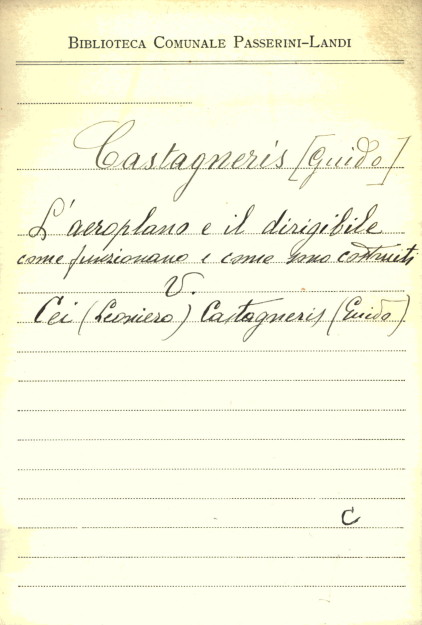 BIBLIOTECA COMUNALE PASSERINI-LANDI
Castagneris [Guido]
L'aeroplano e il dirigibile
come funzionano e come sono costruiti
V.
Cei (Leoniero) Castagneris (Guido)
C